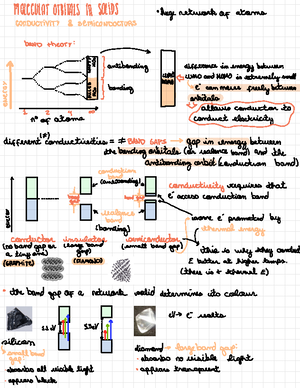 MOLECULAR ORBITALS IN SOLIDS
CONDUCTIVITY & SEMICONDUCTORS
• huge network of atoms
BAND THEORY:
antibonding
bonding
energy
n° of atoms
band
difference in energy between
LUMO and HOMO is extremely small
e⁻ can move freely between
orbitals
allows conductor to
conduct electricity
different conductivities = ≠ BAND GAPS → gap in energy between
the bonding orbitals (or valence band) and the
antibonding orbital (conduction band)
conduction
band
(antibonding)
energy
valence
band
(bonding)
conductivity requires that
e⁻ access conduction band
some e⁻ promoted by
thermal energy
conductor
(no band gap or
a tiny one)
(GRAPHITE)
insulator
(large band
gap)
(DIAMOND)
semiconductor
(small band gap)
this is why they conduct
E better at higher temps.
(there is + thermal E)
• the band gap of a network solid determines its colour
1.1 eV
5.5 eV
silicon
small band
gap
• absorbs all visible light
• appears black
diamond → large band gap:
• absorbs no visible light
• appears transparent